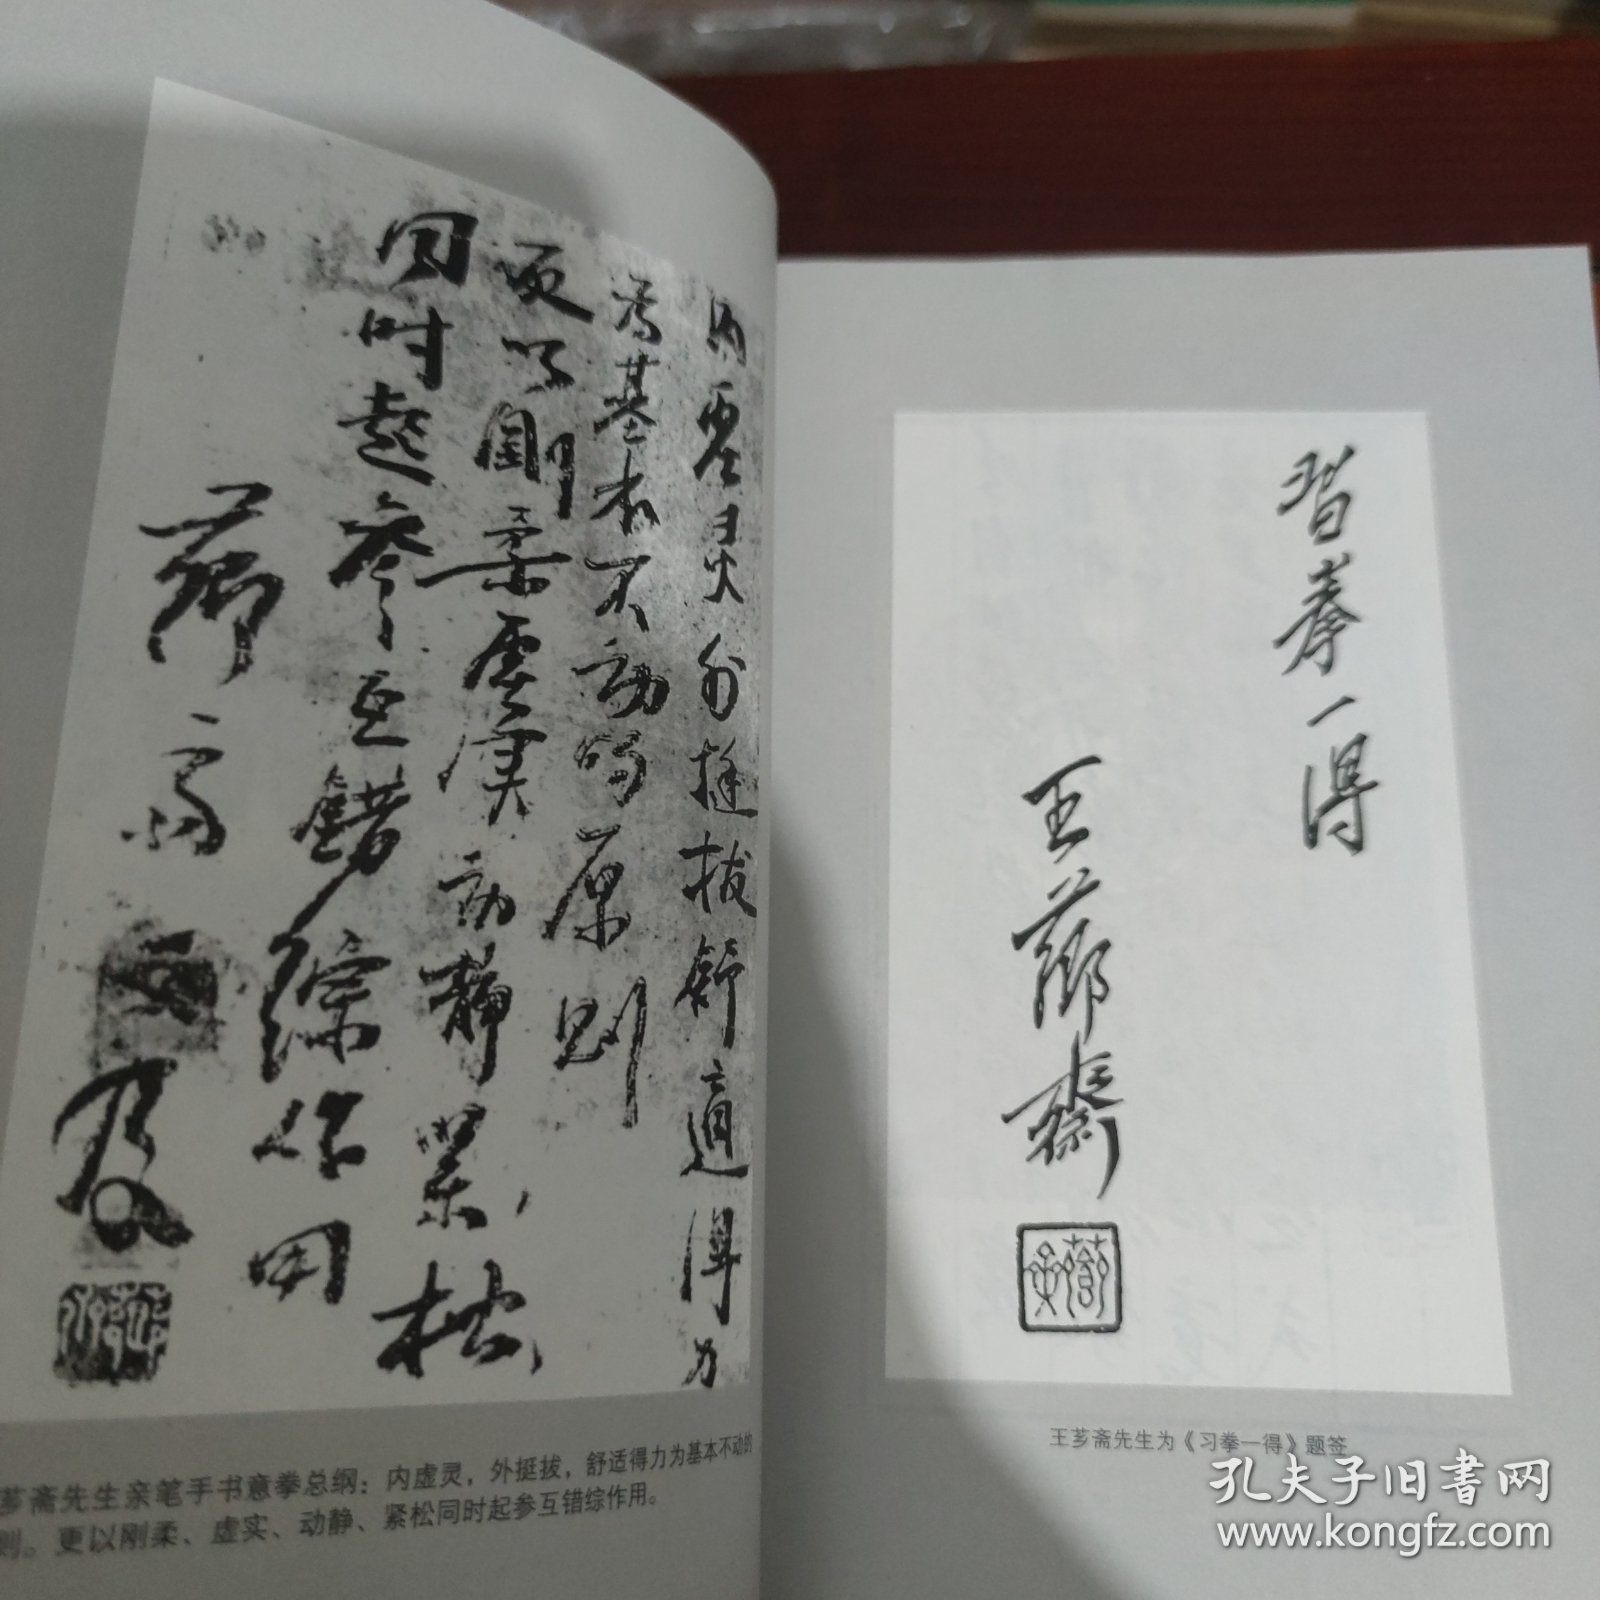 内虚灵外挺拔舒適得力
为基本不动的原则
更以刚柔虚实动静紧松
同时起参互错综作用
薌斋
芗斋先生亲笔手书意拳总纲：内虚灵，外挺拔，舒适得力为基本不动的
则。更以刚柔、虚实、动静、紧松同时起参互错综作用。
習拳一得
王薌齋
王芗斋先生为《习拳一得》题签
孔夫子旧书网
www.kongfz.com